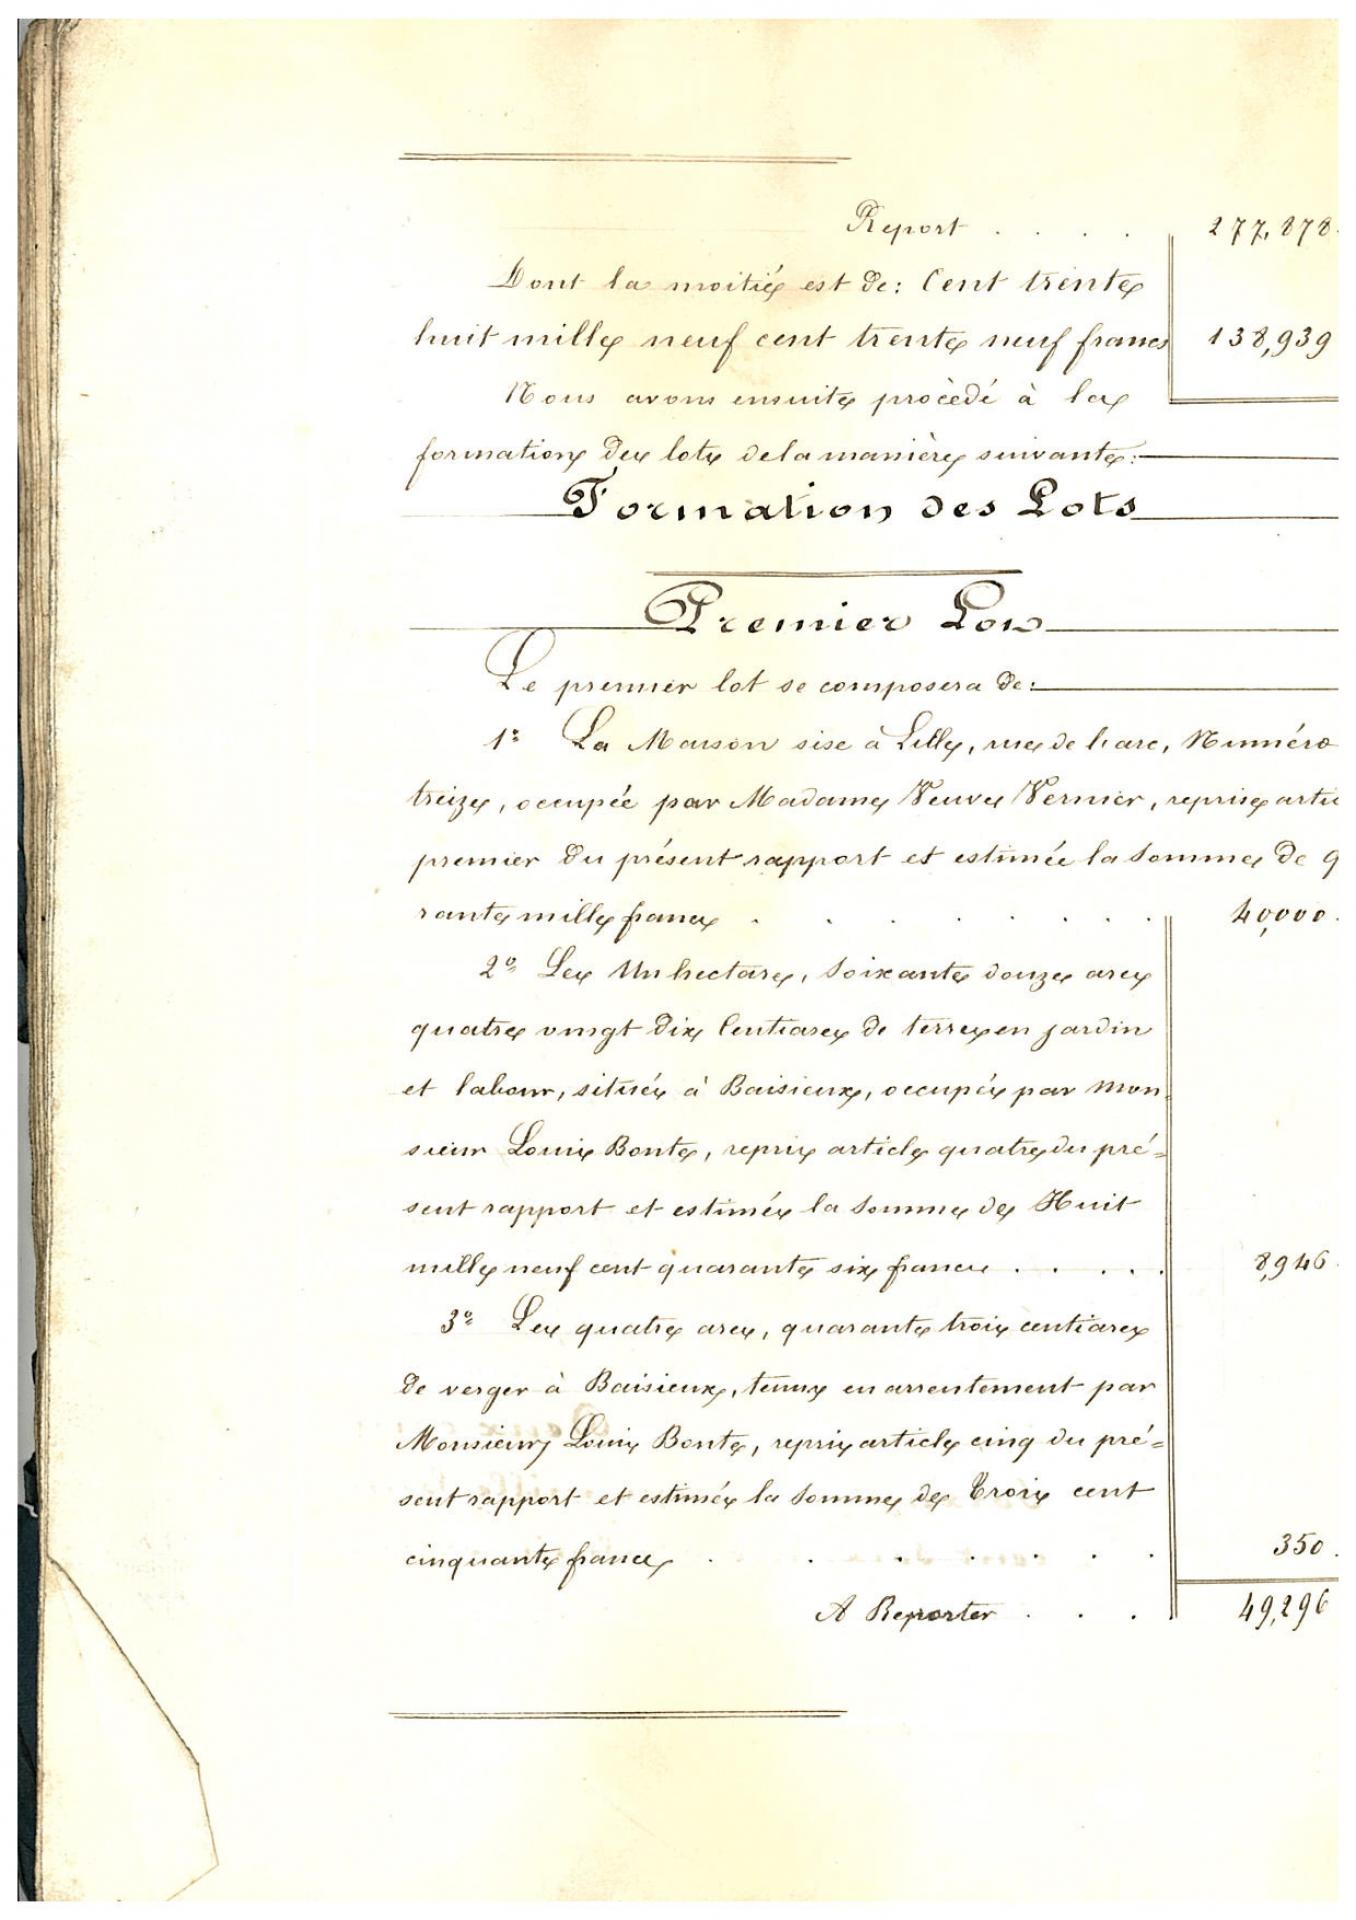 Report . . . . 277,878.
Dont la moitié est de : Cent trente
huit mille neuf cent trente neuf francs 138,939
Nous avons ensuite procèdé à la
formation des lots de la manière suivante :
Formation des Lots
Premier Lot
Le premier lot se composera de :
1° La Maison sise à Lille, rue de l'arc, Numéro
treize, occupée par Madame Veuve Vernier, reprise artic
premier du présent rapport et estimée la somme de q
rante mille francs . . . . . . 40,000.
2° Les Un hectare, Soixante douze ares
quatre vingt dix Centiares de terres en jardin
et labour, situés à Baisieux, occupés par Mon-
sieur Louis Bonte, repris article quatre du pré=
sent rapport et estimés la somme de Huit
mille neuf cent quarante six francs . . . . . 8,946.
3° Les quatre ares, quarante trois centiares
de verger à Baisieux, tenus en arrentement par
Monsieur Louis Bonte, repris article cinq du pré=
sent rapport et estimés la somme de Trois cent
cinquante francs . . . . . . . 350.
A Reporter . . . 49,296